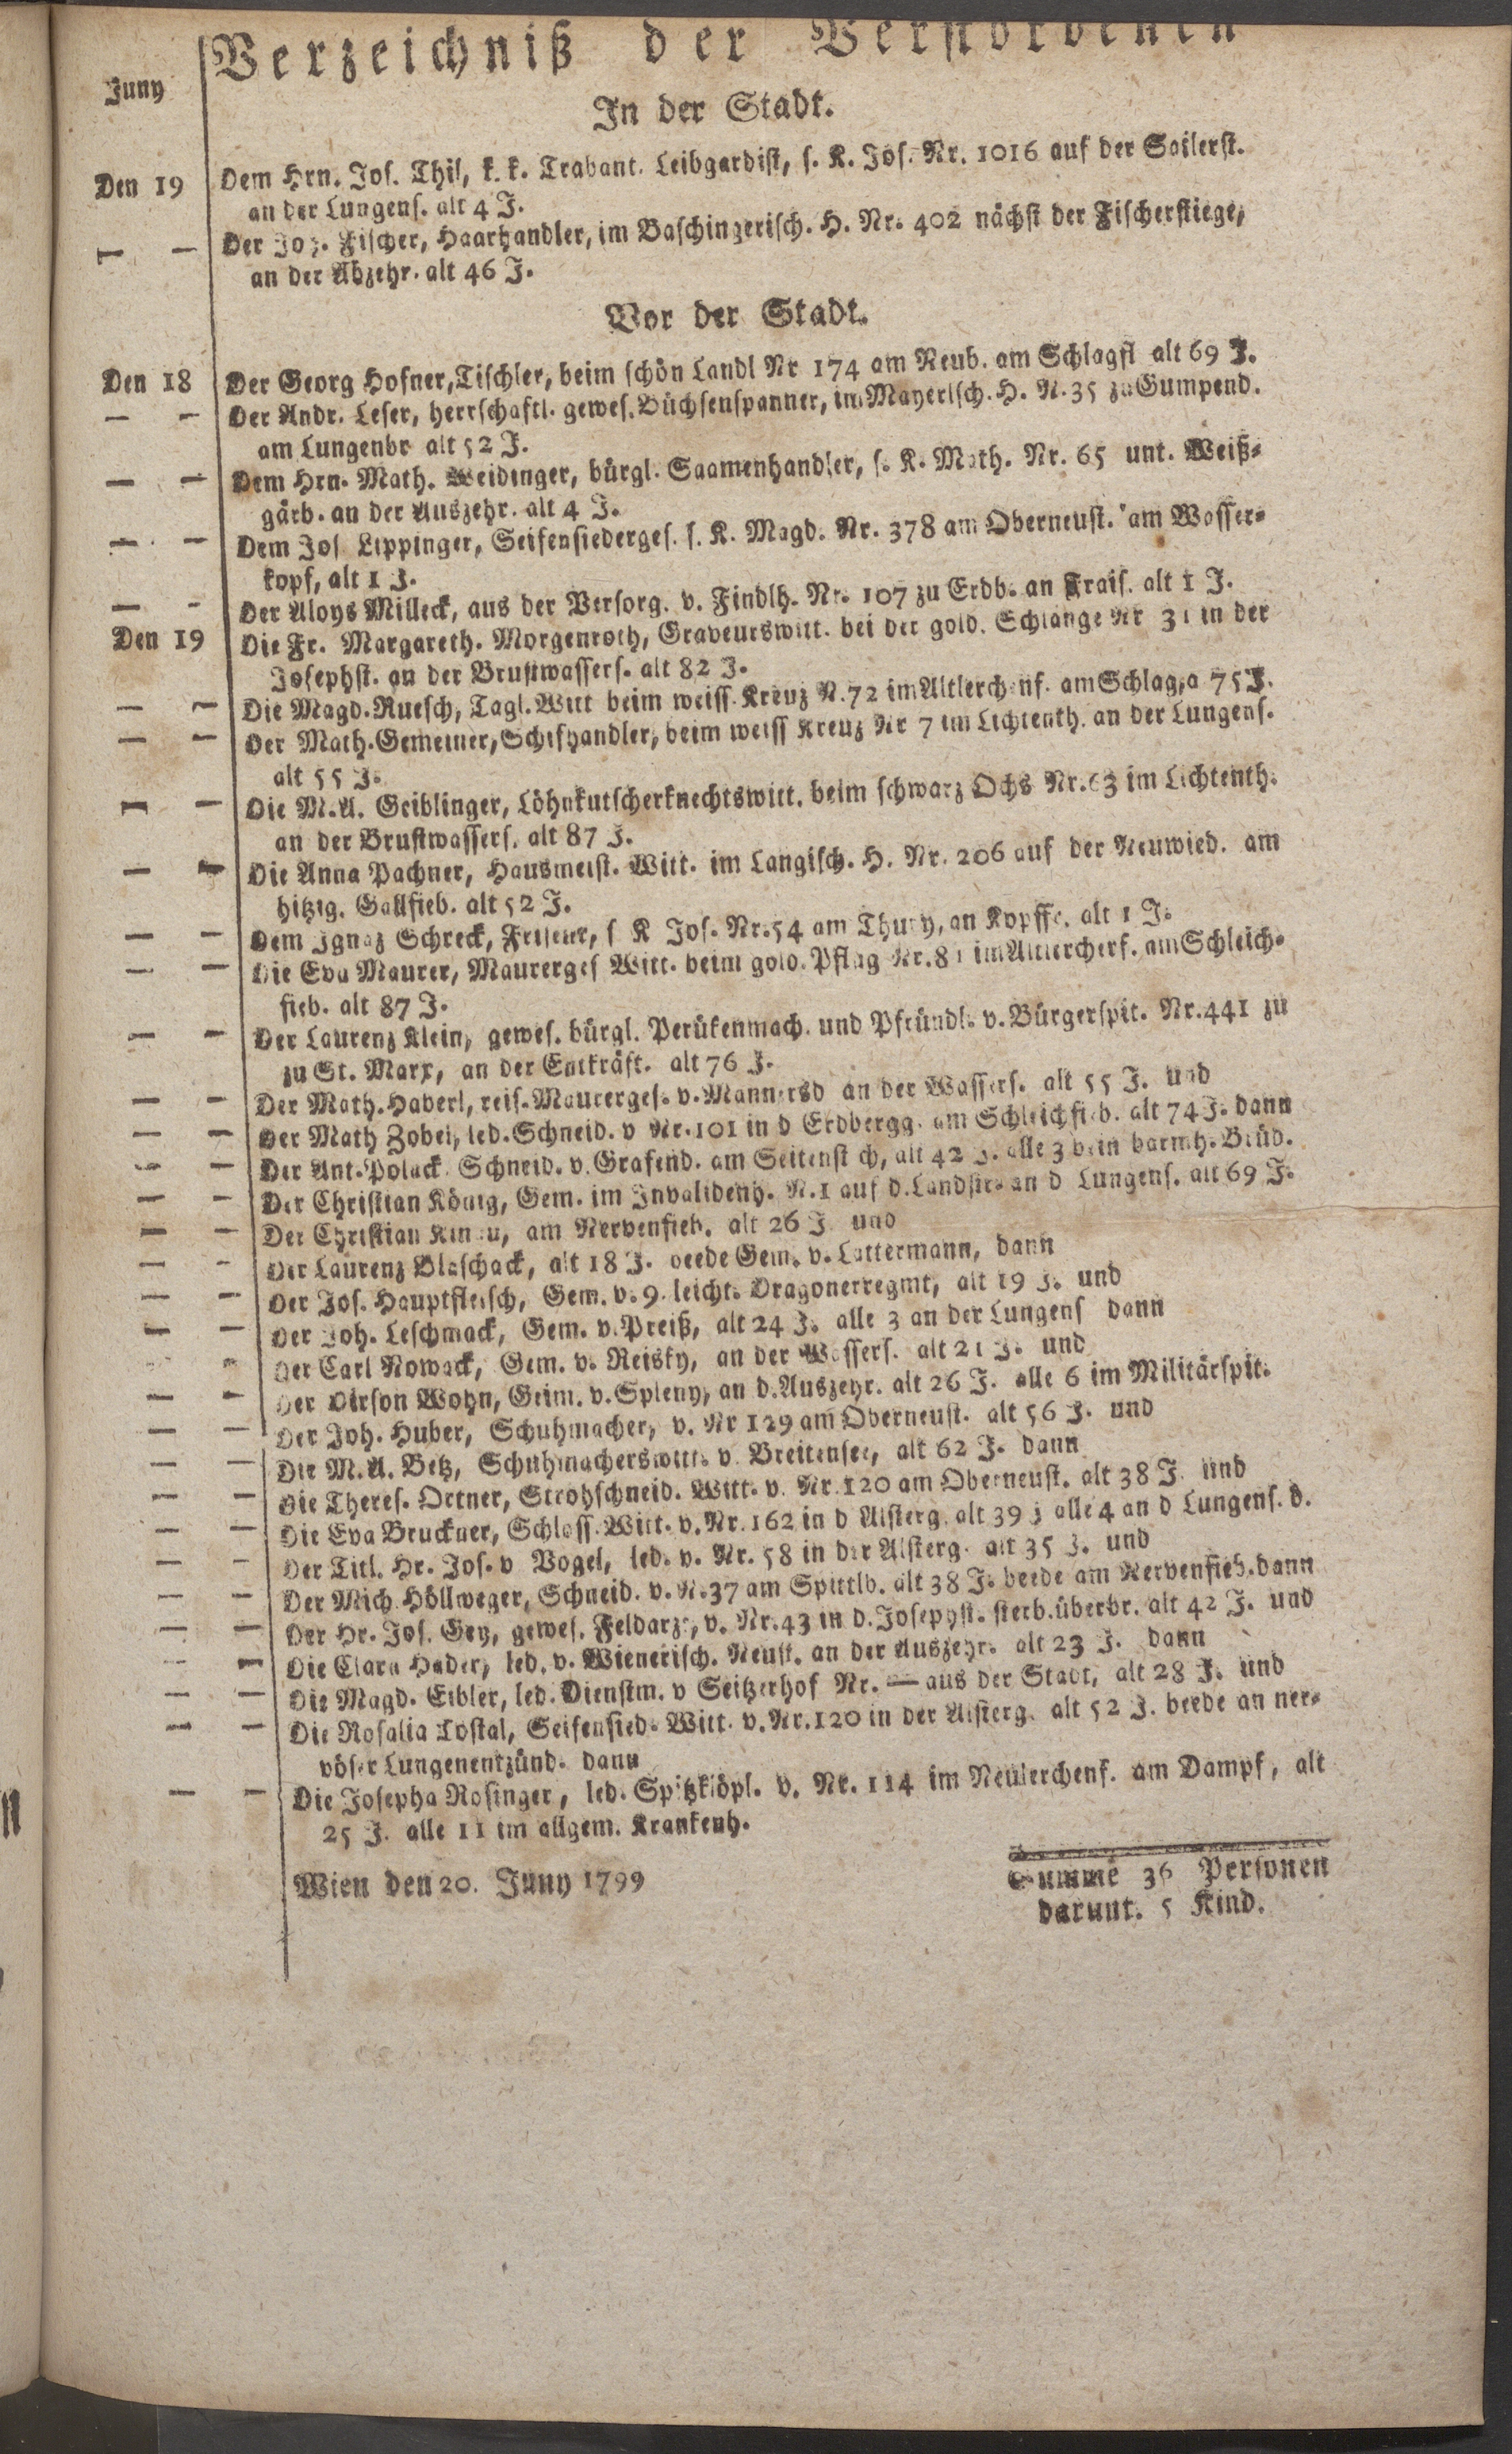 Verzeichniß der Verstorbenen
Juny
In der Stadt.
Den 19 Dem Hrn. Jos. Thil, k. k. Trabant. Leibgardist, s. K. Jos. Nr. 1016 auf der Sailerst.
an der Lungens. alt 4 J.
— — Der Jos. Fischer, Haarhandler, im Baschingerisch. H. Nr. 402 nächst der Fischerstiege,
an der Abzehr. alt 46 J.
Vor der Stadt.
Den 18 Der Georg Hofner, Tischler, beim schön Landl Nr 174 am Neub. am Schlagfl alt 69 J.
— — Der Andr. Leser, herrschaftl. gewes. Büchsenspanner, im Mayerisch. H. N. 35 zu Gumpend.
am Lungenbr alt 52 J.
— — Dem Hrn. Math. Weidinger, bürgl. Saamenhandler, s. K. Math. Nr. 65 unt. Weiß⸗
gärb. an der Auszehr. alt 4 J.
— — Dem Jos Lippinger, Seifensiederges. s. K. Magd. Nr. 378 am Oberneust. am Wasser⸗
kopf, alt 1 J.
— — Der Aloys Milleck, aus der Versorg. v. Findlh. Nr. 107 zu Erdb. an Frais. alt 1 J.
Den 19 Die Fr. Margareth. Morgenroth, Graveurswitt. bei der gold. Schlange Nr 31 in der
Josephst. an der Brustwassers. alt 82 J.
— — Die Magd. Ruesch, Tagl. Witt beim weiss. Kreuz N. 72 im Altlerchenf. am Schlag, a 75 J.
— — Der Math. Gemeiner, Schifhandler, beim weiss Kreuz Nr 7 im Lichtenth. an der Lungens.
alt 55 J.
— — Die M. A. Geiblinger, Löhnkutscherknechtswitt. beim schwarz Ochs Nr. 63 im Lichtenth.
an der Brustwassers. alt 87 J.
— — Die Anna Pachner, Hausmeist. Witt. im Langisch. H. Nr. 206 auf der Neuwied. am
hitzig. Gallfieb. alt 52 J.
— — Dem Ignaz Schreck, Friseur, s K Jos. Nr. 54 am Thury, an Kopffr. alt 1 J.
— — Die Eva Maurer, Maurerges Witt. beim gold. Pflug Nr. 81 im Altlercherf. am Schleich⸗
fieb. alt 87 J.
— — Der Laurenz Klein, gewes. bürgl. Perükenmach. und Pfründl. v. Bürgerspit. Nr. 441 zu
zu St. Marx, an der Entkräft. alt 76 J.
— — Der Math. Haberl, reis. Maurerges. v. Mannersd an der Wassers. alt 55 J. und
— — Der Math Zobel, led. Schneid. v Nr. 101 in d Erdbergg. am Schleichfieb. alt 74 J. dann
— — Der Ant. Polack Schneid. v. Grafend. am Seitenstich, alt 42 J. alle 3 bein barmh. Brüd.
— — Der Christian König, Gem. im Invalidenh. N. 1 auf d. Landstr. an d Lungens. alt 69 J.
— — Der Christian am Nervenfieb. alt 26 J und
— — Der Laurenz Blaschack, alt 18 J. beede Gem. v. Lattermann, dann
— — Der Jos. Hauptfleisch, Gem. v. 9. leicht. Dragonerregmt, alt 19 J. und
— — Der Joh. Leschmack, Gem. v. Preiß, alt 24 J. alle 3 an der Lungens dann
— Der Carl Nowack, Gem. v. Reisky, an der Wassers. alt 21 J. und
— — Der Dirson Wohn, Geim. v. Spleny, an d. Auszehr. alt 26 J. alle 6 im Militärspit.
— — Der Joh. Huber, Schuhmacher, v. Nr 129 am Oberneust. alt 56 J. und
— — Die M. A. Betz, Schuhmacherswitt. v. Breitensee, alt 62 J. dann
— — Die Theres. Ortner, Strohschneid. Witt. v. Nr. 120 am Oberneust. alt 38 J. und
— — Die Eva Bruckner, Schloss. Witt. v. Nr. 162 in d Alsterg. alt 39 J alle 4 an d Lungens. d.
— — Der Titl. Hr. Jos. v Vogel, led. v. Nr. 58 in der Alsterg. alt 35 J. und
— — Der Mich. Höllweger, Schneid. v. N. 37 am Spittlb. alt 38 J. beede am Nervenfieb. dann
— — Der Hr. Jos. Gey, gewes. Feldarzt, v. Nr. 43 in d. Josephst. sterb. überbr. alt 42 J. und
— — Die Clara Hader, led. v. Wienerisch. Neust. an der Auszehr. alt 23 J. dann
— — Die Magd. Eibler, led. Dienstm. v Seitzerhof Nr. — aus der Stadt, alt 28 J. und
— — Die Rosalia Seifensied. Witt. v. Nr. 120 in der Alsterg. alt 52 J. beede an ner⸗
vöser Lungenentzünd. dann
— — Die Josepha Rosinger, led. Spitzklöpl. v. Nr. 114 im Neulerchenf. am Dampf, alt
25 J. alle 11 im allgem. Krankenh.
Wien den 20. Juny 1799
Summe 36 Personen
darunt. 5 Kind.